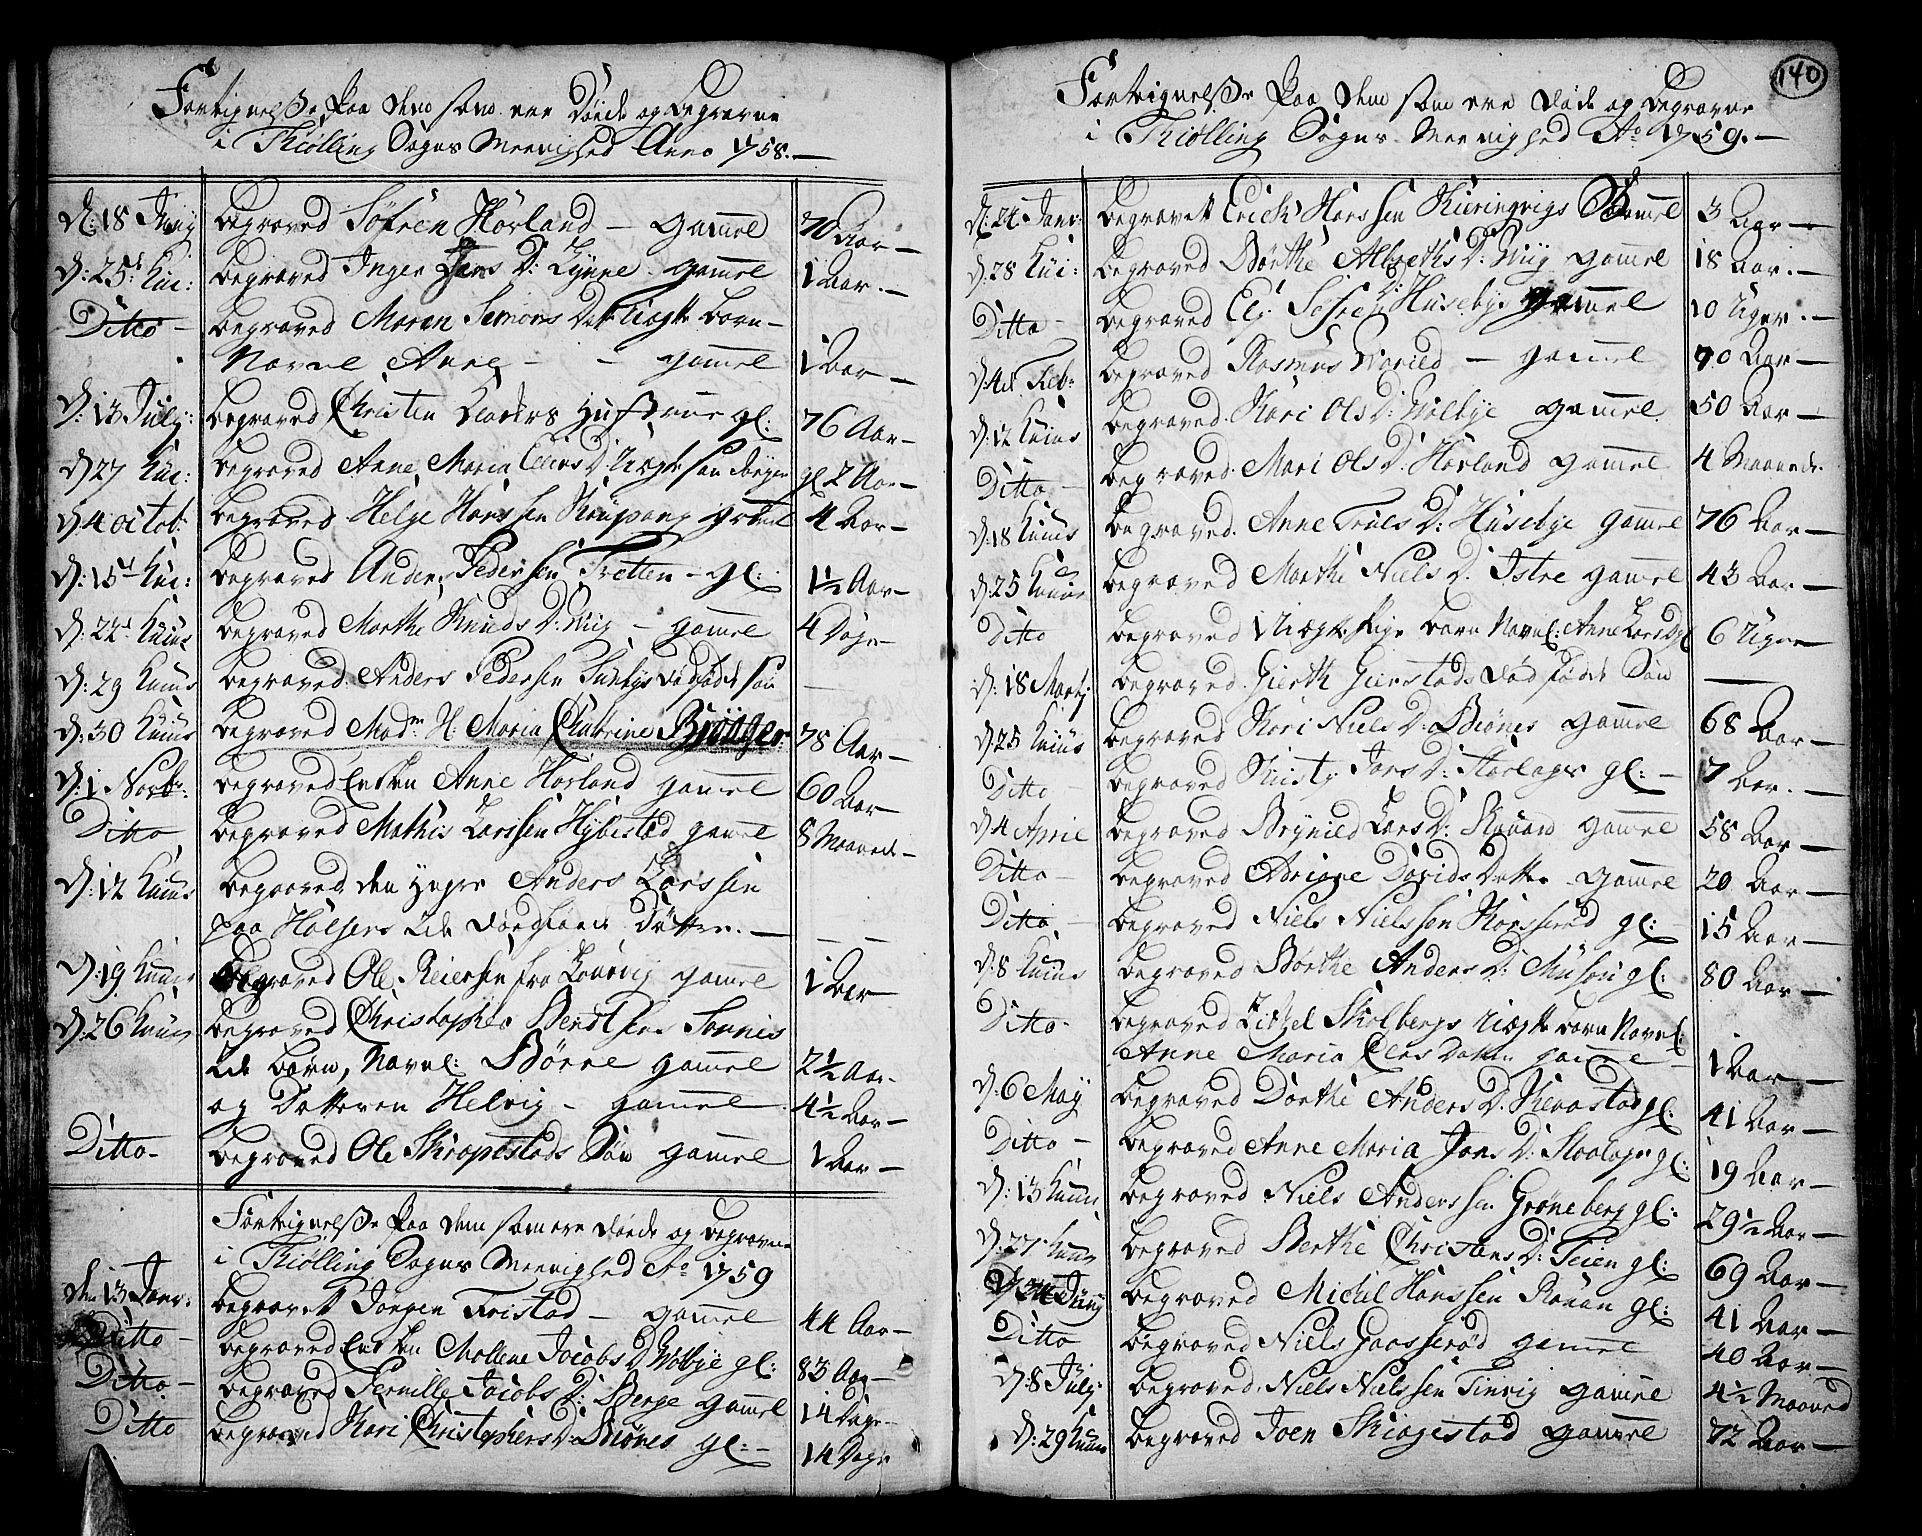 Fortegnelse paa dem som ere Døde og Begravne
i Thiølling Sogns Menighed Anno 1758. —
d: 18 Junij begraved Søfren Horland — gammel 70 Aar —
d: 25 huj: begraved Inger Lars D: Lynne gammel 1 Aar. —
Ditto — begraved Maren Simons Dtr uægte barn —
Navnl Anne — — gammel 1 Aar —
d: 13 Julij: begraved Christen Hustrue gl: 76 Aar —
d 27 huj: begraved Anne Maria D: uægte gl 2 Aar —
d 4 octob: begraved Helge Hanssen Kaupang gammel 4 Aar —
d: 15 huj: begraved Anders Pedersen Fretten — gl: 1½ Aar —
d: 22 hujus begraved Marthe Knuds D: Vüig — gammel 4 Dage —
d: 29 hujus begraved Anders Pedersen Sundbyes dødfødde Søn —
d: 30 hujus begraved Mad.m H: Maria Chatrine Brönger: 78 Aar —
d: 1 Novbr: begraved Enken Anne Horland gammel 60 Aar
Ditto begraved Mathis Larssen Hybested gammel 8 Maaned —
d: 12 hujus begraved den Yngre Anders Larssen
paa Holjers Ln dødfødde Dotter. — — —
d: 19 hujus begraved Ole Reiersen fra Laurvig gammel 1 Aar —
d: 26 hujus begraved Christopher Bendtsen
2de Børn, Navnl: Børre gammel 2½ Aar
og Dotteren Helvig — gammel 4½ Aar —
Ditto — begraved Ole Skrapestads Søn gammel 1 Aar —
Fortegnelse paa dem som ere døde og begravne
i Thiølling Sogns Menighed Ao 1759
den 13 Janr: begravet Jorgen Fristad — gammel 44 Aar —
Ditto — begraved Enken Mallene Jacobs D: Wolbye gl: 83 Aar —
Ditto — begraved Pernille Jacobs D: Berge gammel 14 Dage —
Ditto begraved Kari Christophers D: Biønes gl: — 14 Dage
140
Fortegnelse paa dem som ere døde og begravne
i Thiølling Sogns Menighed Ao 1759. —
d: 24 Janr: begravet Erich Hanssen Kieringvigs gammel 3 Aar —
d: 28 huj: begraved Børthe Albreths D: Vüig gammel 18 Aar. —
Ditto — begraved Elj. Sofren D: Husebye gammel 10 Uger. —
d: 4de Feb: begraved Rasmus — gammel 70 Aar —
d: 12 hujus begraved Kari Ols D: Wolbye gammel 50 Aar —
Ditto — begraved Mari Ols D: Horland gammel 4 Maaneder
d: 18 hujus begraved Anne Truls D: Husebye gammel 76 Aar —
d: 25 hujus begraved Marthe Niels D. Istre gammel 43 Aar —
Ditto begraved et uægte barn Navnl: Anne Lars D: gl 6 Uger
d: 18 Martj begraved Gierth Gierstads død fødde Søn —
d: 25 hujus begraved Kari Niels D: Biønes gammel 68 Aar —
Ditto — begraved Kirsty Jans D: Skalager gl: — 7 Aar. —
d 4 April begraved Brynild Lars D: Rauan gammel 58 Aar —
Ditto — begraved Adriane Davids Datter gammel 20 Aar —
Ditto. — begraved Niels Nielssen Kaasserød gl: — 15 Aar —
d: 8 hujus begraved Børthe Anders D: Müsøn gl: 80 Aar —
Ditto. begraved Skolbergs uægte barn Navnl:
Anne Maria Datter gammel — 1 Aar —
d: 6 Maij begraved Dorthe Anders D. Kierastad gl: 41 Aar —
Ditto — begraved Anne Maria Jans D: Skalager gl: 19 Aar —
d: 13 hujus begraved Niels Anderssen Grøneberg gl: 29½ Aar —
d: 27 hujus begraved Berthe Christens D: Teien gl: 69 Aar —
Junij begraved Michil Hanssen Rauan gl: 41 Aar —
Ditto begraved Niels Gaasserød gammel 40 Aar —
d: 8 Julij: begraved Niels Nielssen Tinvig gammel 4½ Maaned
d: 29 hujus begraved Joen Skiagestad gammel 72 Aar —